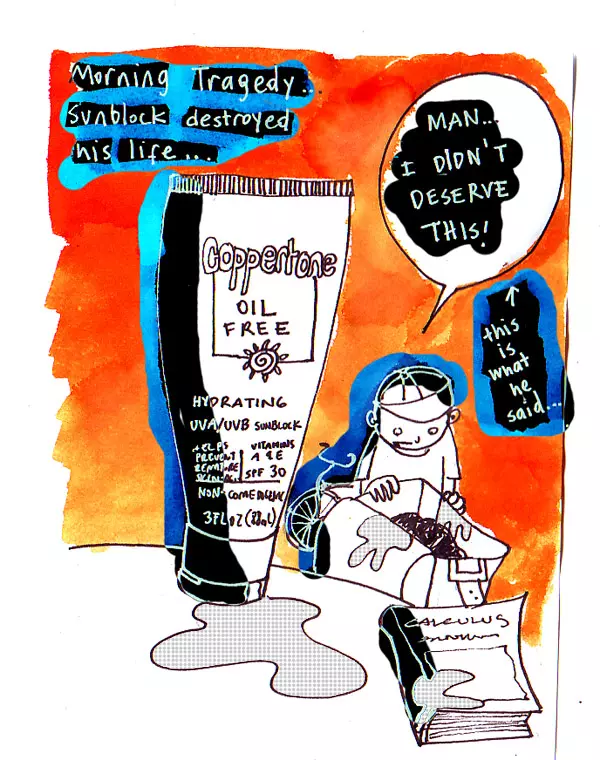 Morning Tragedy...
Sunblock destroyed
his life...
MAN...
I DIDN'T
DESERVE
THIS!
↑
this
is
what
he
said...
Coppertone
OIL
FREE
HYDRATING
UVA/UVB SUNBLOCK
HELPS
PREVENT
VITAMINS
A & E
SPF 30
NON-
3FL OZ
CALCULUS